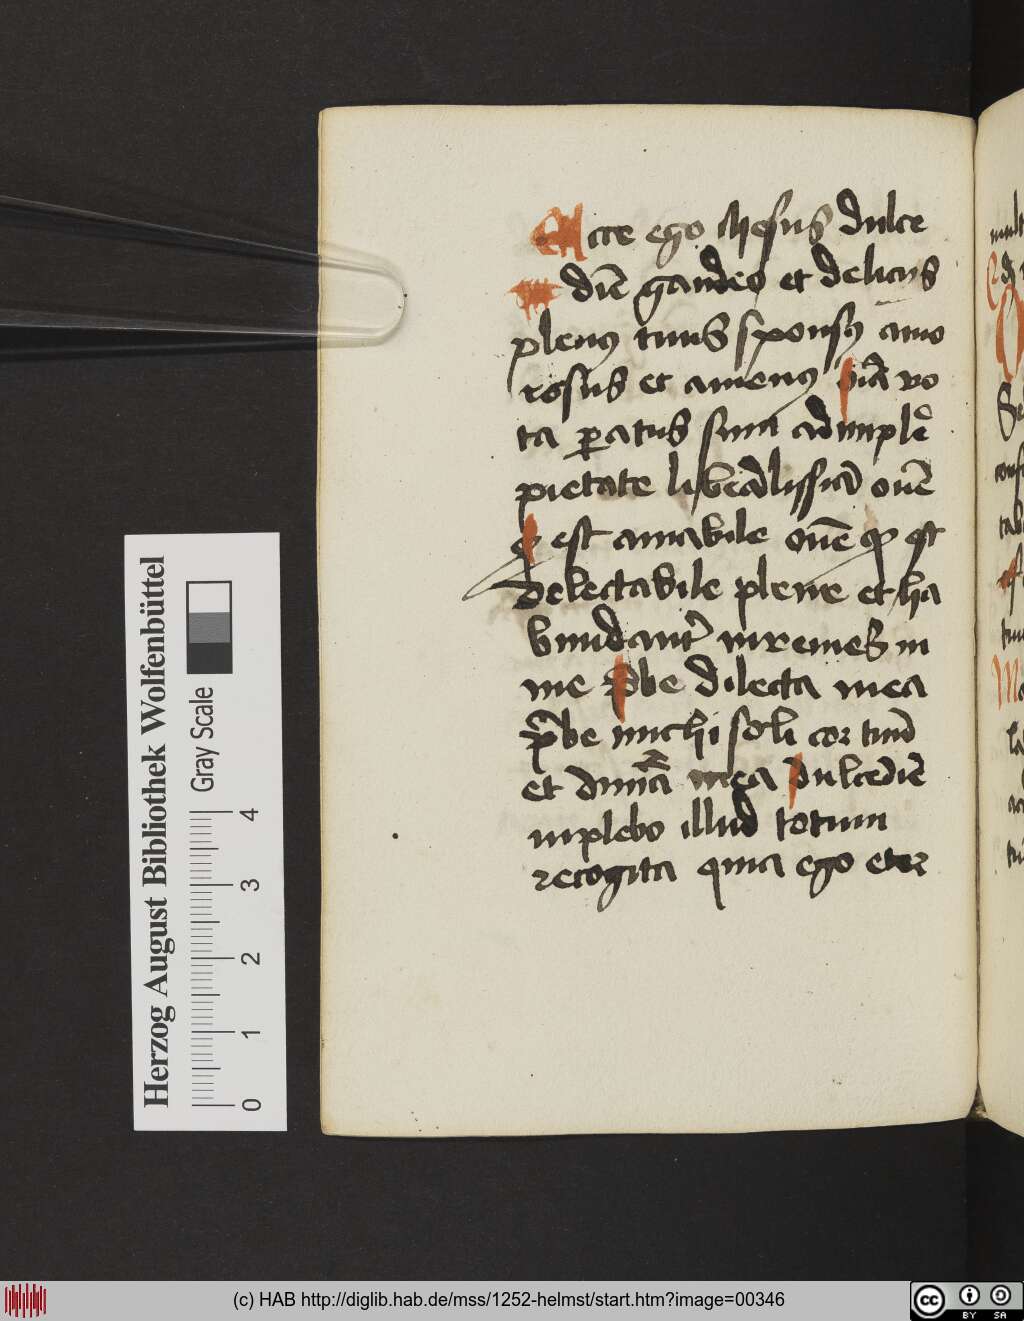 Ecce ego ihesus dulce
diē gaudeo et deliciis
plenꝰ tuus sponsꝰ amo
rosus et amenꝰ oīa vo
ta paratus sum adimplē
pietate liberalissīā oīe
qͥ est amabile oīe qͥ est
delectabile plene et ha
bundant͛ inuenies in
me p̄be dilecta mea
p̄be michi soli cor tuū
et aīmā mea dulcediē
implebo illud totum
recogita quia ego eter
Herzog August Bibliothek Wolfenbüttel
Gray Scale
0 1 2 3 4
(c) HAB http://diglib.hab.de/mss/1252-helmst/start.htm?image=00346
cc BY SA